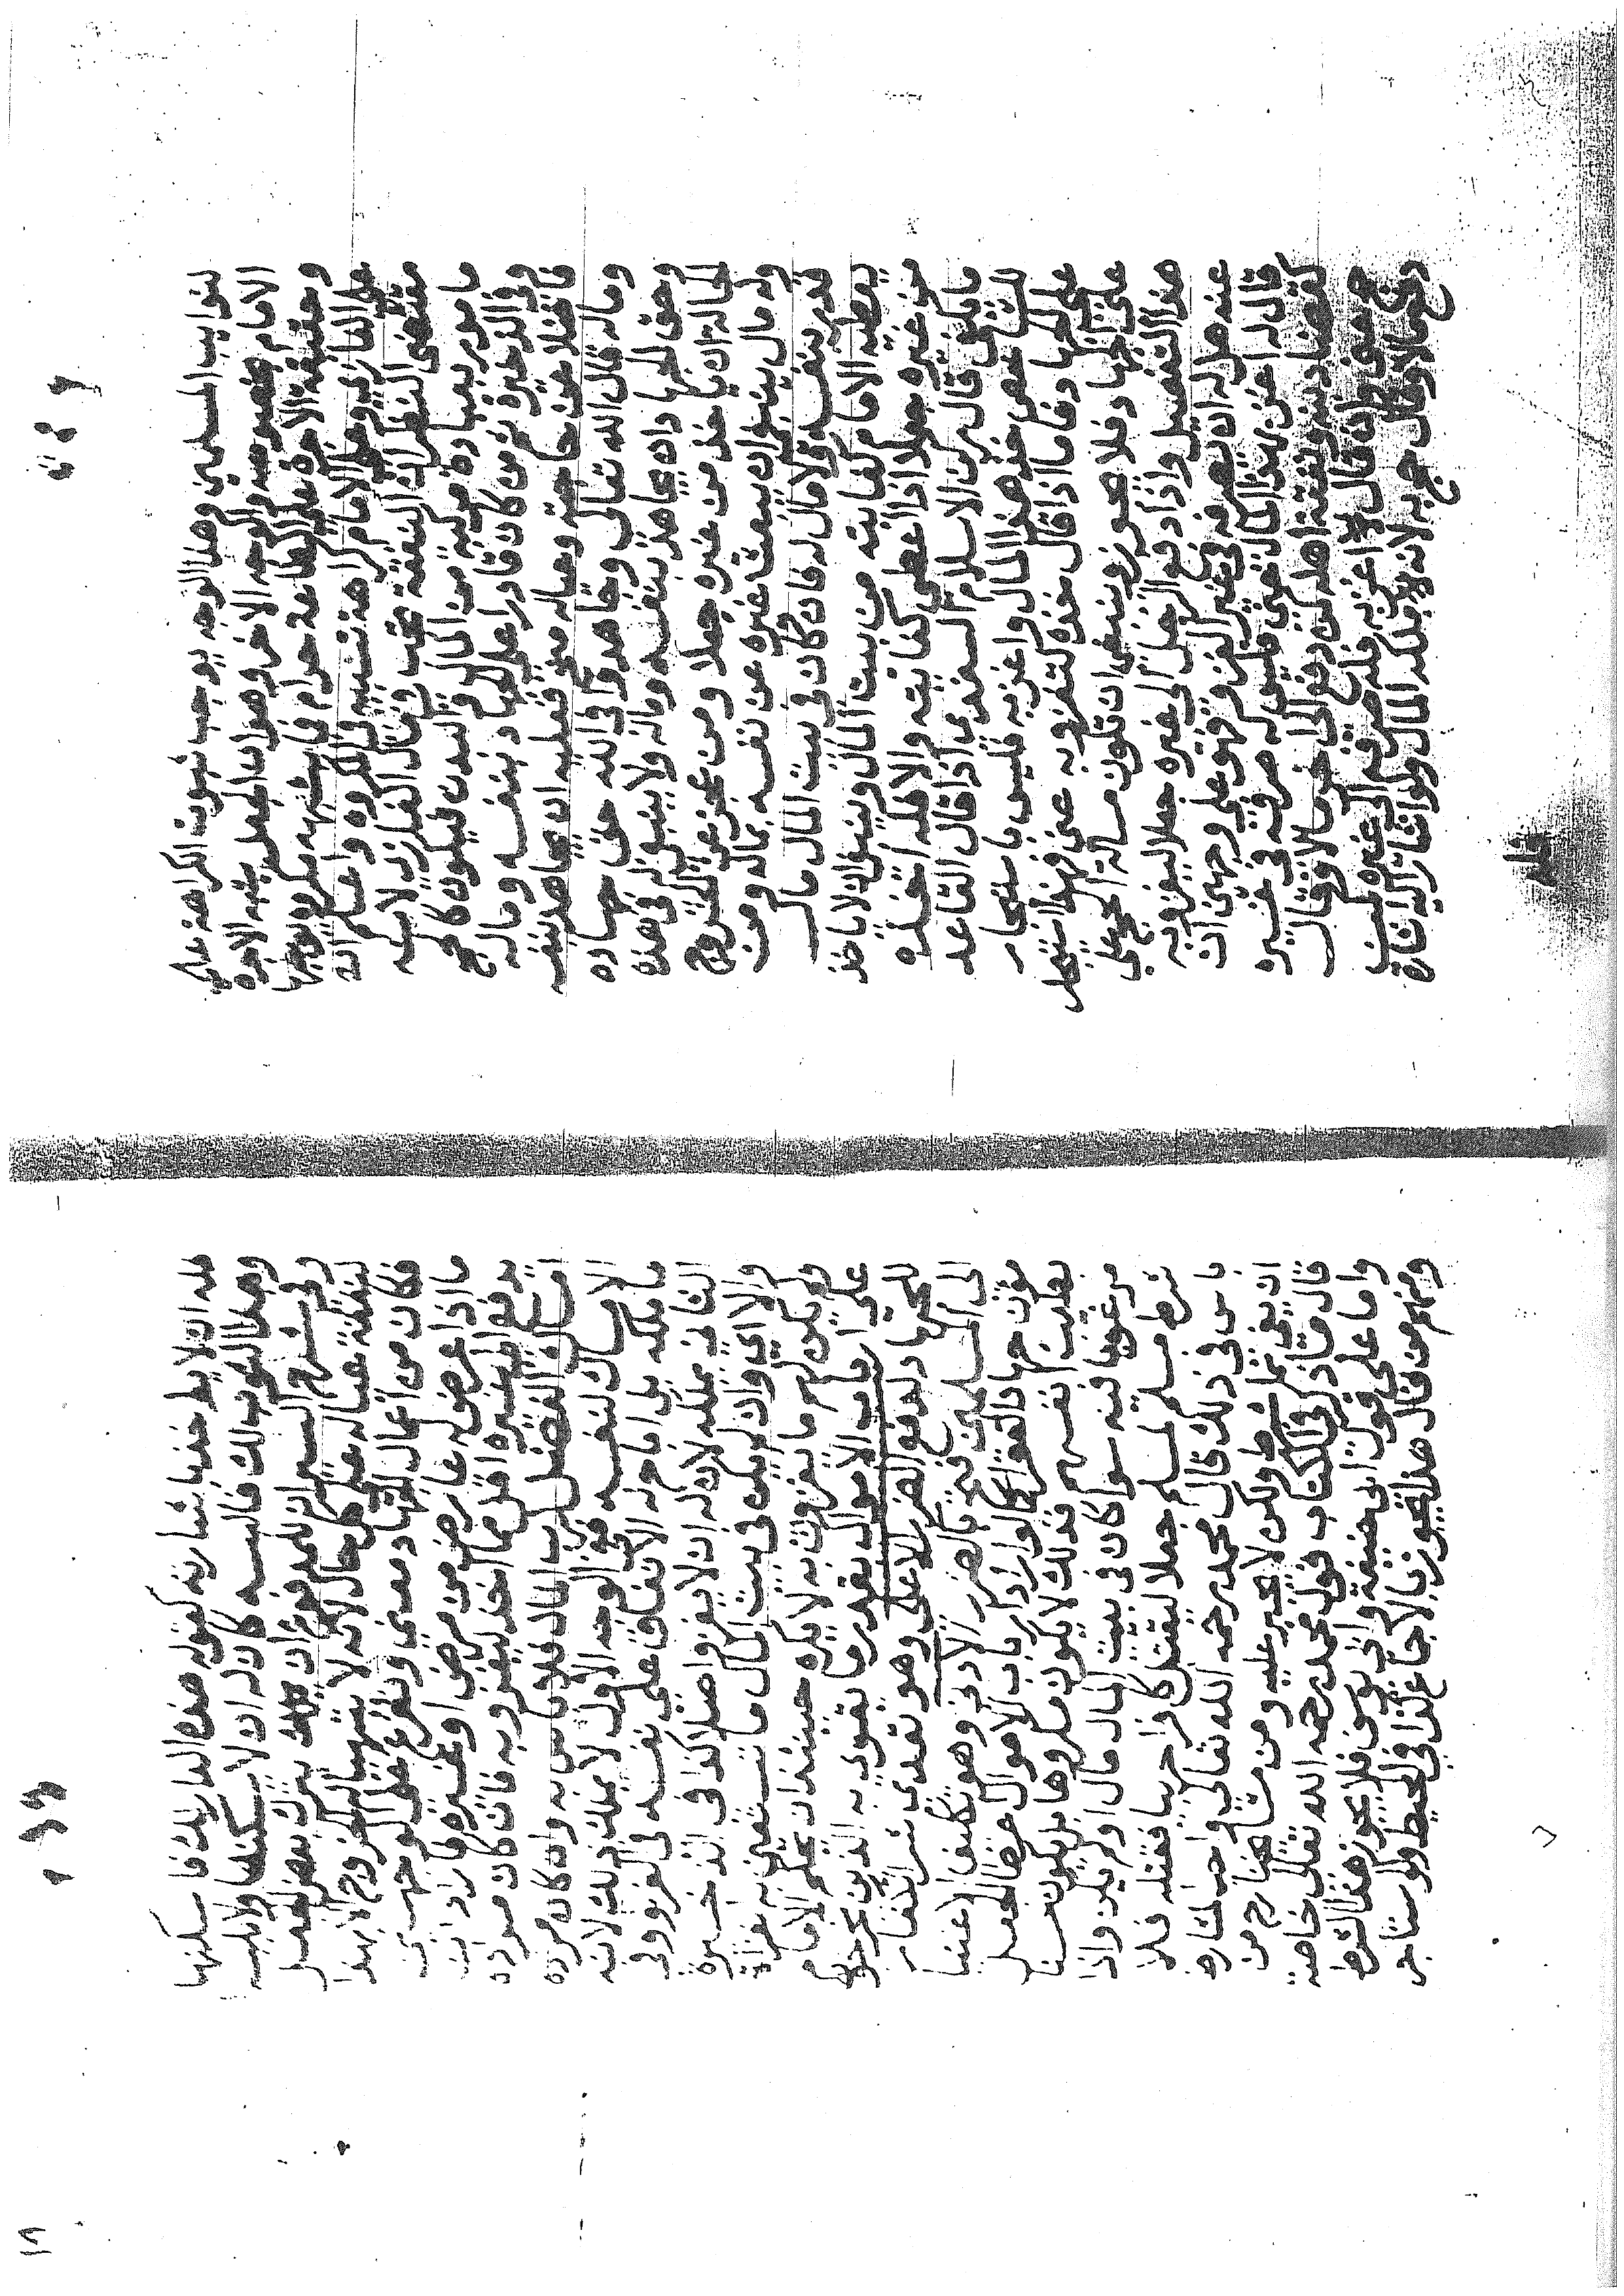 لنوايب المسلمين وهذا الوجه يوجب ثبوت الكراهة على
الامام بخصوصه والوجه الاخر وهو ان الجعل يشبه الاجرة
وحقيقة الاجرة على الطاعة حرام فما يشبهه مكروه يوجبها
على الغازي وعلى الامام كراهة المكروه واعلم ان
مقتضى النظر ان النفقة تجب في مال الغازي لانه
مامور بعبادة مركبة من المال والبدن فيكون كالحج
وفي الذخيرة ثم من كان قادرا على الجهاد بنفسه وماله
فاضلا عن حاجته وعياله فعليه ان يجاهد بنفسه
وماله قال الله تعالى وجاهدوا في الله حق جهاده
وحق الجهاد ان يجاهد بنفسه وماله ولا ينبغي له في هذه
الحالة ان ياخذ من غيره جعلا ومن عجز عن الخروج
وله مال ينبغي ان يبعث غيره عن نفسه بماله ومن
قدر بنفسه ولا مال له فان كان في بيت المال مال
يعطيه الامام كفايته من بيت المال وينبغي ان لا ياخذ
من غيره جعلا اذا اعطى كفايته والا فله اخذه
ما يكفي قال الاسلام السغدي اذا قال القاعد
للشاخص خذ هذا المال واغز به فليس باستيجار
على الجهاد فاما اذا قال خذه لتغزو به عني فهذا استيجار
على الجهاد فلا يجوز وينبغي ان تكون مسالة الحج على
هذا التفصيل واذا دفع الرجل الى غيره جعلا ليغزو به
عنه هل له ان يصرفه في غير الغزو فهو على وجهين ان
قال له اغز بهذا المال عني فليس له صرفه في غيره
كقضا دينه ونفقة اهله كمن دفع الى اخر مالا وقال
حج عني وان قال اغز به فله صرفه الى غيره كمن
دفع مالا وقال حج به لانه ملكه المال واشار اليه اشارة
فله
فله ان لا ياخذ باشارته كقوله هذه الدار لك فاسكنها
وهذا الثوب لك فالبسه كان له ان لا يسكنها ولا يلبسه
وفي شرح السير ان يترك بعض الجعل
لنفقة عياله على كل حال لانه لا يتهيا له الخروج الا بهذا
فكان من اعمال الجهاد معنى وتفرع على الوجهين
ما اذا عرض له عارض من مرض او غيره فاراد ان
يدفع الى غيره اقل مما اخذ ليغزو به فان كان مراده
امساك الفضل لرب المال فلا باس به وان كان مراده
الامساك لنفسه ففي الوجه الاول لا يملك ذلك لانه
ما ملكه بل اباح له الانفاق على نفسه في الغزو وفي
الثاني يملكه لان له ان لا يغزو اصلا كذا في الذخيرة
والا اي وان لم يكن في بيت المال ما يستعين به الغزاة
ولم يكن لهم ما يغزون به لا يكره حينئذ ان يحكم الامام
على ارباب الاموال بقدر ما يتقوى به الذين يخرجون
للجهاد لدفع الضرر الاعلى وهو تعدي شر الكفار
الى المسلمين بالضرر الادنى وهو تكليف الاغنيا
تقوية جهاد الفقرا لو اراد ارباب الاموال هذا الجعل
بطيب انفسهم فذلك لا يكون مكروها بل يكون حسنا
مرغوبا فيه سوا كان في بيت المال مال اولم يكن واذا
شرط مسلم لمسلم جعلا ليقتل كافرا حربيا فقتله فلا
باس في ذلك قال محمد رحمه الله تعالى واحب لشارطه
ان يفي بما شرط ولكن لا يجبر عليه ومن مشايخنا من
قال ما ذكر في الكتاب قول محمد رحمه الله تعالى خاصة
واما على قول ابي حنيفة وابي يوسف فلا يجوز هذا الشرط
ومنهم من قال هذا يجوز بالاجماع كذا في المحيط ولو استاجر